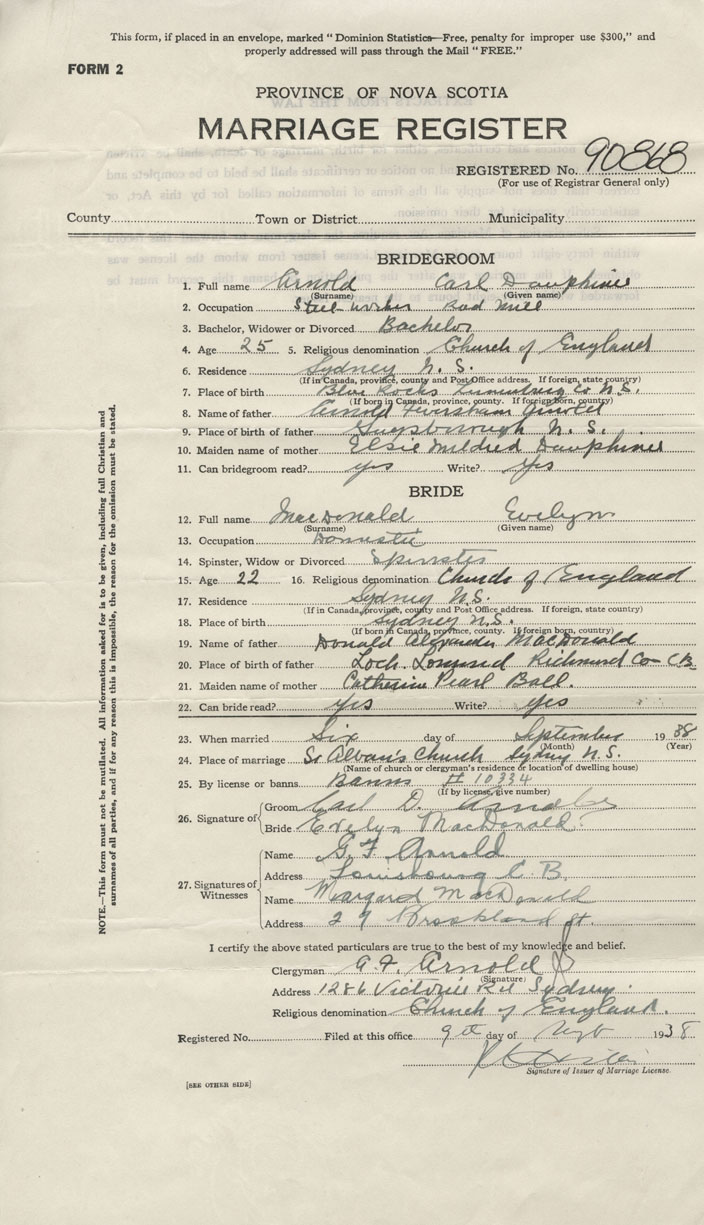 This form, if placed in an envelope, marked " Dominion Statistics—Free, penalty for improper use $300," and
properly addressed will pass through the Mail "FREE."
FORM 2
PROVINCE OF NOVA SCOTIA
MARRIAGE REGISTER
REGISTERED No. 90868
(For use of Registrar General only)
County Town or District Municipality
BRIDEGROOM
1. Full name Arnold Carl Dauphinee
(Surname) (Given name)
2. Occupation Steel Worker Rod Mill
3. Bachelor, Widower or Divorced Bachelor
4. Age 25 5. Religious denomination Church of England
6. Residence Sydney N. S.
(If in Canada, province, county and Post Office address. If foreign, state country)
7. Place of birth Blue Rocks Lunenburg Co N.S.
(If born in Canada, province, county. If foreign born, country)
8. Name of father Arnold Feversham Arnold
9. Place of birth of father Guysborough N. S.
10. Maiden name of mother Elsie Mildred Dauphinee
11. Can bridegroom read? yes Write? yes
BRIDE
12. Full name MacDonald Evelyn
(Surname) (Given name)
13. Occupation Domestic
14. Spinster, Widow or Divorced Spinster
15. Age 22 16. Religious denomination Church of England
17. Residence Sydney N.S.
(If in Canada, province, county and Post Office address. If foreign, state country)
18. Place of birth Sydney N.S.
(If born in Canada, province, county. If foreign born, country)
19. Name of father Donald Alexander MacDonald
20. Place of birth of father Loch Lomond Richmond Co C.B.
21. Maiden name of mother Catherine Pearl Ball.
22. Can bride read? yes Write? yes
23. When married Six day of September 1938
(Month) (Year)
24. Place of marriage St Alban's Church Sydney N.S.
(Name of church or clergyman's residence or location of dwelling house)
25. By license or banns Banns # 10334
(If by license, give number)
26. Signature of
Groom Carl D. Arnold
Bride Evelyn MacDonald.
27. Signatures of Witnesses
Name G F Arnold
Address Louisbourg C. B.
Name Margaret MacDonald
Address 29 Brookland St.
I certify the above stated particulars are true to the best of my knowledge and belief.
Clergyman A. F. Arnold
(Signature)
Address 1286 Victoria Rd Sydney.
Religious denomination Church of England.
Registered No. Filed at this office 9th day of 1938
Signature of Issuer of Marriage License.
[SEE OTHER SIDE]
NOTE.—This form must not be mutilated. All information asked for is to be given, including full Christian and
surnames of all parties, and if for any reason this is impossible, the reason for the omission must be stated.